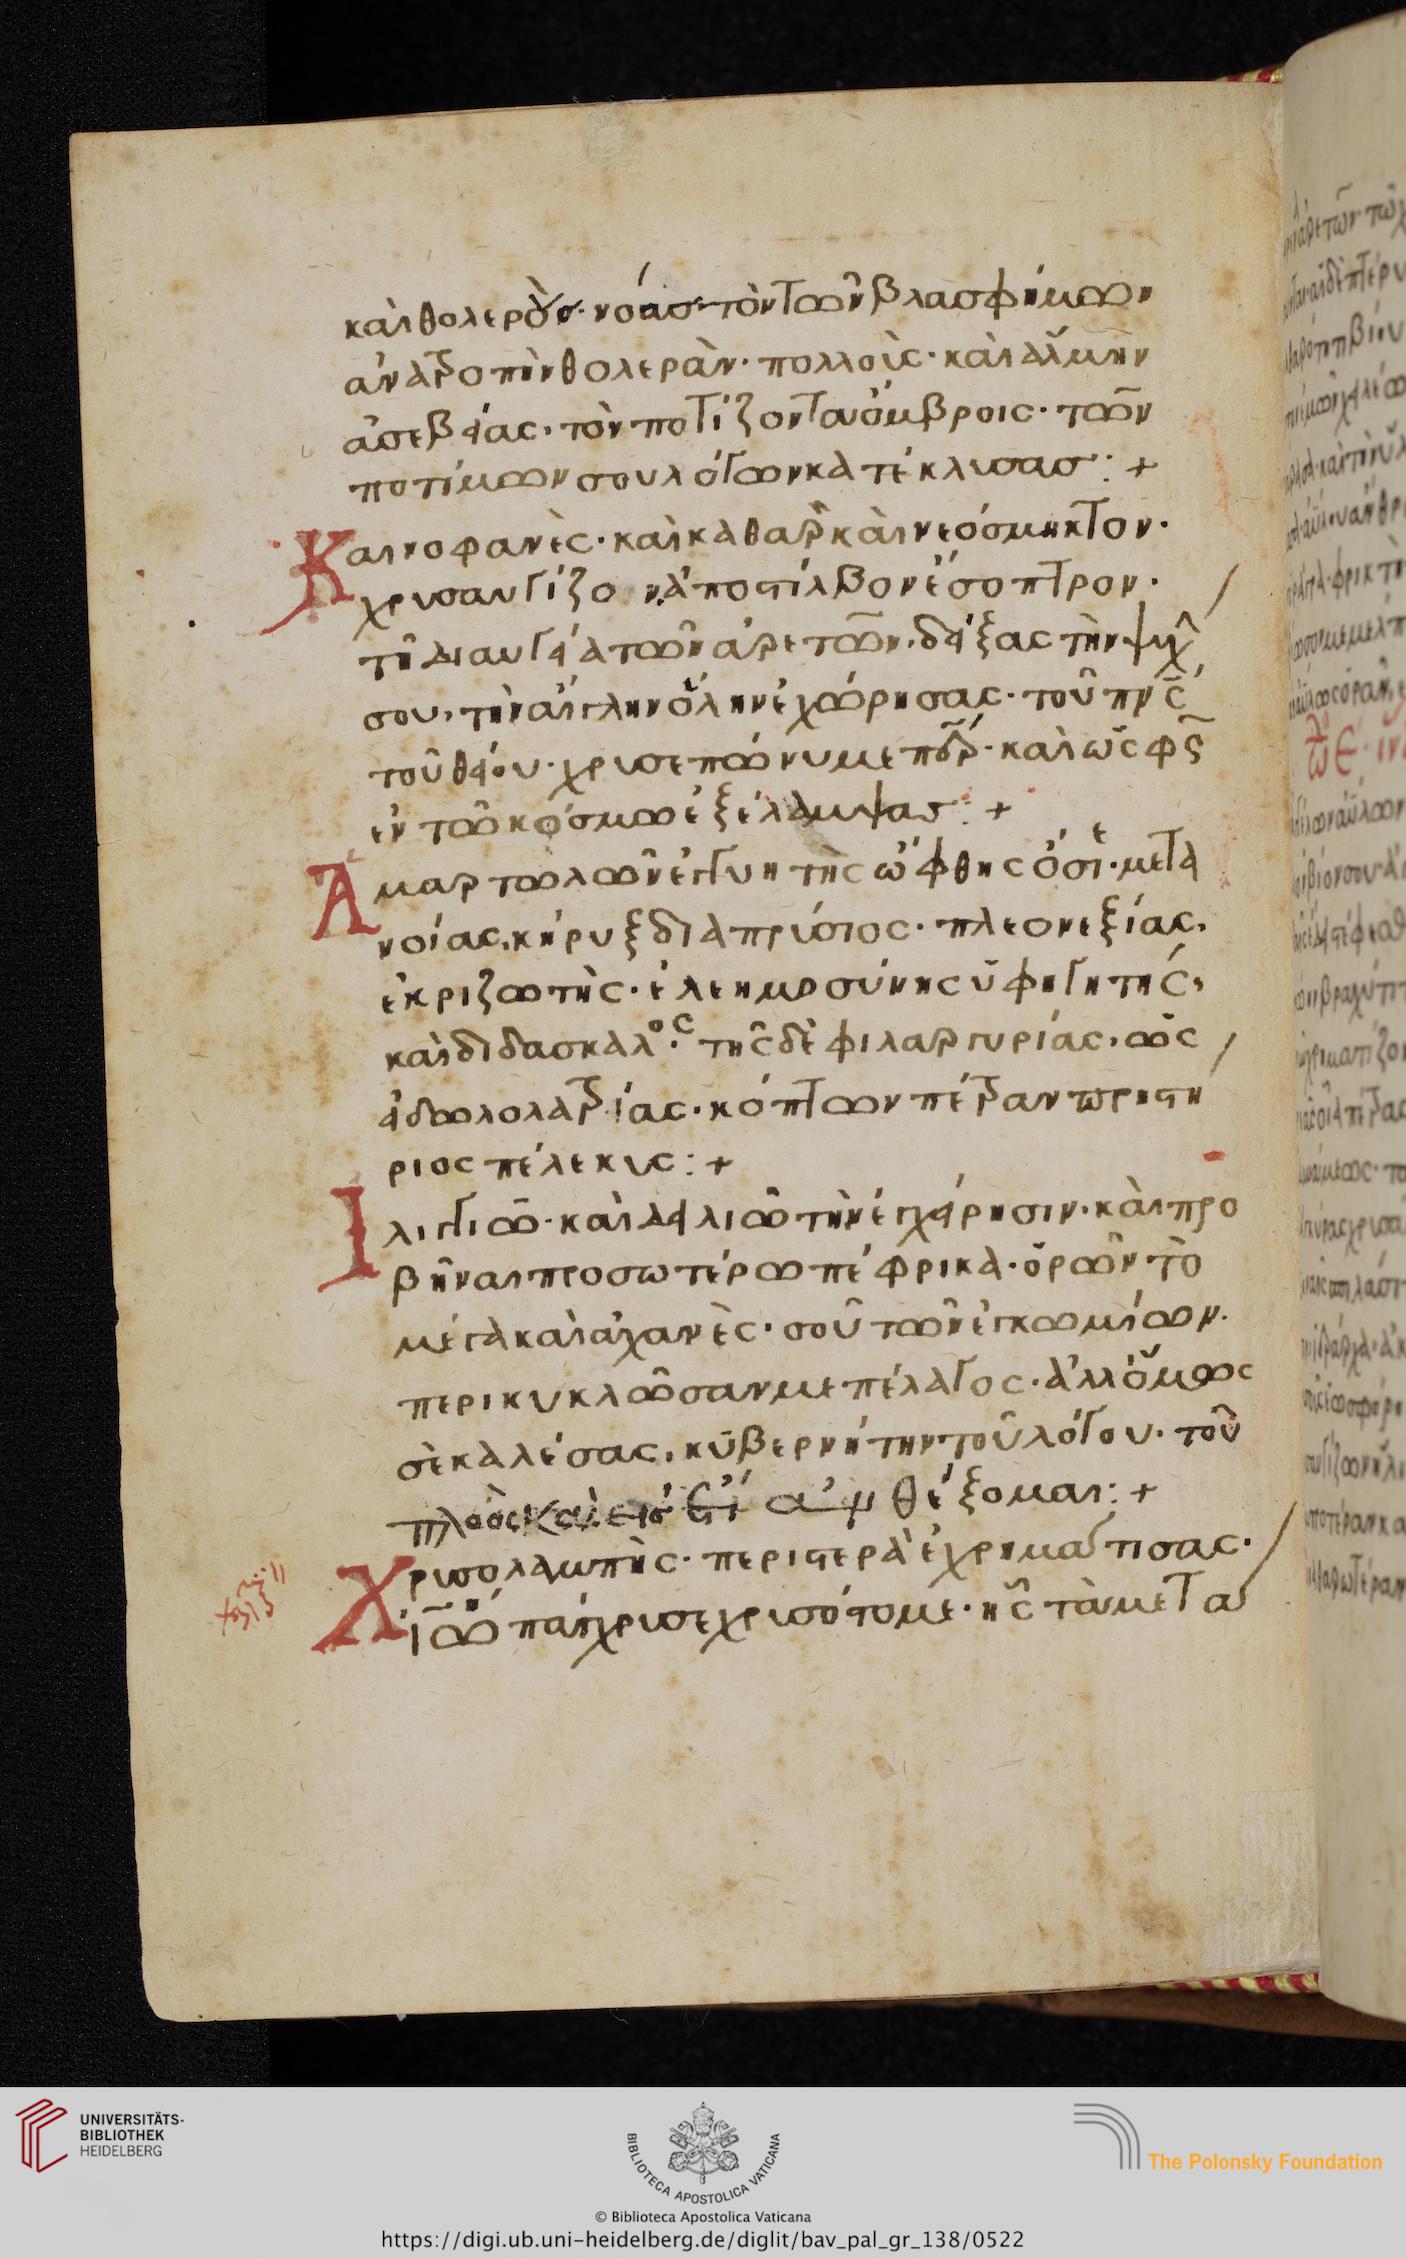 καὶ θολεροὺσ· νοάσ· τὸν τῶν βλασφήμων
ἀνατροπὴν θολερὰν· πολλοῖς· καὶ ἄλμην
ἀσεβείας· τὸν ποτίζοντα ὄμβροις· τῶν
ποτίμων σου λόγων κατέκλυσασ:+
Καινοφανὲς· καὶ καθαρ καὶ νεόσμηκτον·
χρυσαυγίζον ἀποστίλβον ἔσοπτρον·
τῆ διαυγεία τῶν ἀρετῶν· δείξας τὴν ψυχ
σου, τὴν αἴγλην ὅλην ἐχώρησας· τοῦ πνς
τοῦ θείου· χρυσεπώνυμε πρ· καὶ ὡς φς
ἐν τῶ κόσμω ἐξέλαμψασ:+
Ἁμαρτωλῶν ἐγγυητὴς ὤφθης ὅσιε· μετα
νοίας, κήρυξ διαπρύσιος· πλεονεξίας,
ἐκριζωτὴς· ἐλεημοσύνης ὑφηγητής,
καὶ διδασκαλος· τῆς δὲ φιλαργυρίας, ὡς
εἰδωλολατρίας· κόπτων πέτραν πρηστη
ριος πέλεκυς:+
Ἰλιγγιῶ· καὶ δειλιῶ τὴν ἐγχείρησιν· καὶ προ
βῆναι προσωτέρω πέφρικα· ὁρῶν τὸ
μέγα καὶ ἀχανὲς· σοῦ τῶν ἐγκωμίων·
περικυκλῶσαν με πέλαγος· ἀλλ' ὅμως
σὲ καλέσας, κυβερνήτην· τοῦ λόγου· τοῦ
πλοὸς καὶ θέξομαι:+
Χρυσολαμπὴς· περιστερὰ ἐχρημάτισας·
ἰῶ πάγχρυσε χρυσότομε· ἧς τὰ μετα
UNIVERSITÄTS-
BIBLIOTHEK
HEIDELBERG
BIBLIOTECA APOSTOLICA VATICANA
© Biblioteca Apostolica Vaticana
The Polonsky Foundation
https://digi.ub.uni-heidelberg.de/diglit/bav_pal_gr_138/0522